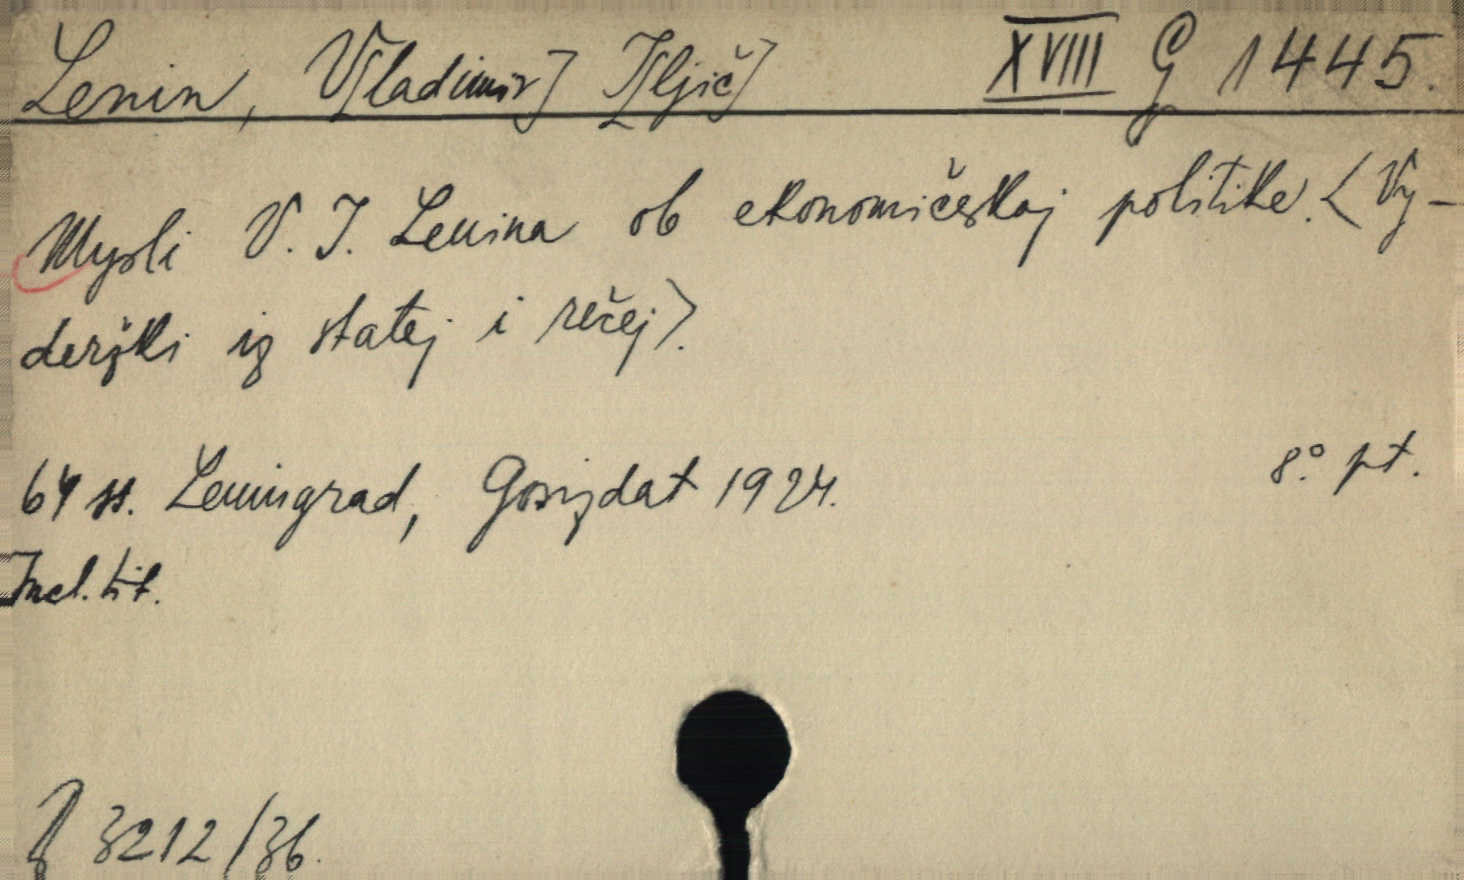 Lenin, V[ladimir] I[ljič] XVIII G 1445.
Mysli V. I. Lenina ob ekonomičeskoj politike. <Vy-
deržki iz statej i rečej>.
64 ss. Leningrad, Gosizdat 1924. 8° pt.
Incl. tit.
3212/36.